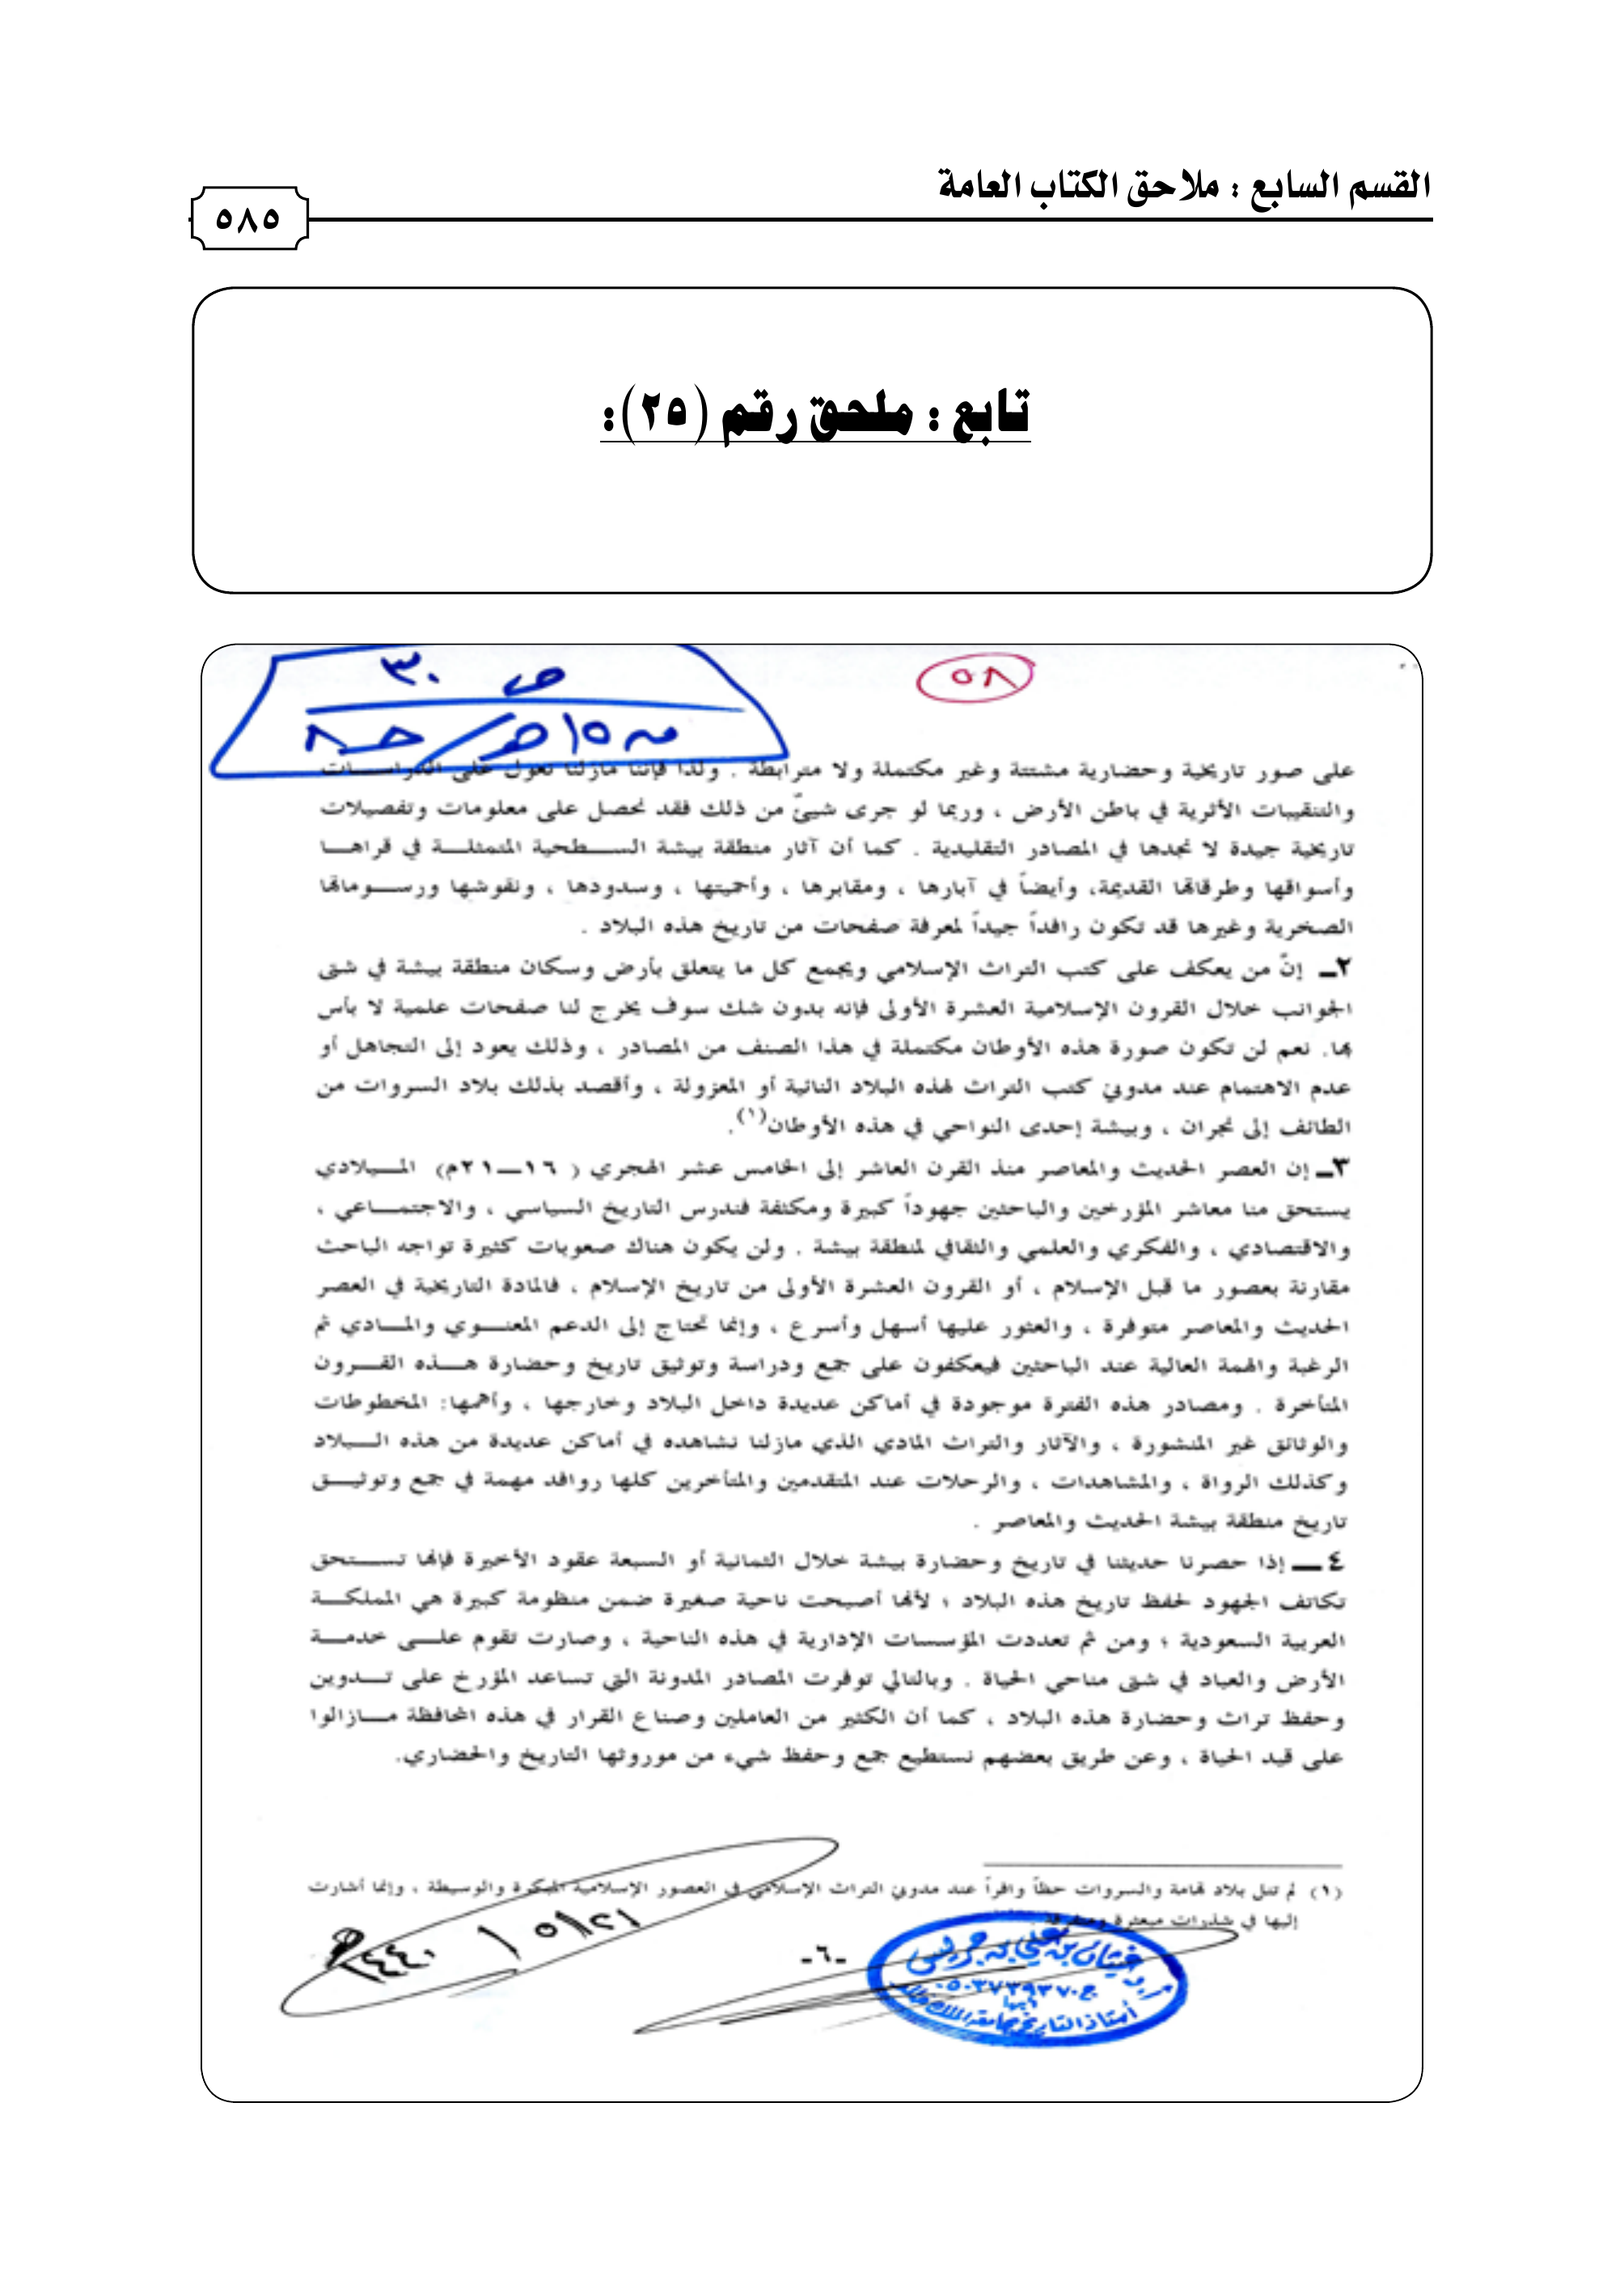 القسم السابع : ملاحق الكتاب العامة
٥٨٥
تابع : ملحق رقم (٢٥):
٥٨
ص ٣٠
على صور تاريخية وحضارية مشتتة وغير مكتملة ولا مترابطة . ولذا فإننا مازلنا نعول على الدراسات
والتنقيبات الأثرية في باطن الأرض ، وربما لو جرى شيئٌ من ذلك فقد نحصل على معلومات وتفصيلات
تاريخية جيدة لا نجدها في المصادر التقليدية . كما أن آثار منطقة بيشة السطحية المتمثلة في قراها
وأسواقها وطرقاتها القديمة، وأيضاً في آبارها ، ومقابرها ، وأحميتها ، وسدودها ، ونقوشها ورسوماتها
الصخرية وغيرها قد تكون رافداً جيداً لمعرفة صفحات من تاريخ هذه البلاد .
٢ــ إنّ من يعكف على كتب التراث الإسلامي ويجمع كل ما يتعلق بأرض وسكان منطقة بيشة في شتى
الجوانب خلال القرون الإسلامية العشرة الأولى فإنه بدون شك سوف يخرج لنا صفحات علمية لا بأس
بها. نعم لن تكون صورة هذه الأوطان مكتملة في هذا الصنف من المصادر ، وذلك يعود إلى التجاهل أو
عدم الاهتمام عند مدوني كتب التراث لهذه البلاد النائية أو المعزولة ، وأقصد بذلك بلاد السروات من
الطائف إلى نجران ، وبيشة إحدى النواحي في هذه الأوطان(١).
٣ــ إن العصر الحديث والمعاصر منذ القرن العاشر إلى الخامس عشر الهجري ( ١٦ــ٢١م) الميلادي
يستحق منا معاشر المؤرخين والباحثين جهوداً كبيرة ومكثفة فندرس التاريخ السياسي ، والاجتماعي ،
والاقتصادي ، والفكري والعلمي والثقافي لمنطقة بيشة . ولن يكون هناك صعوبات كثيرة تواجه الباحث
مقارنة بعصور ما قبل الإسلام ، أو القرون العشرة الأولى من تاريخ الإسلام ، فالمادة التاريخية في العصر
الحديث والمعاصر متوفرة ، والعثور عليها أسهل وأسرع ، وإنما تحتاج إلى الدعم المعنوي والمادي ثم
الرغبة والهمة العالية عند الباحثين فيعكفون على جمع ودراسة وتوثيق تاريخ وحضارة هذه القرون
المتأخرة . ومصادر هذه الفترة موجودة في أماكن عديدة داخل البلاد وخارجها ، وأهمها: المخطوطات
والوثائق غير المنشورة ، والآثار والتراث المادي الذي مازلنا نشاهده في أماكن عديدة من هذه البلاد
وكذلك الرواة ، والمشاهدات ، والرحلات عند المتقدمين والمتأخرين كلها روافد مهمة في جمع وتوثيق
تاريخ منطقة بيشة الحديث والمعاصر .
٤ــ إذا حصرنا حديثنا في تاريخ وحضارة بيشة خلال الثمانية أو السبعة عقود الأخيرة فإنها تستحق
تكاتف الجهود لحفظ تاريخ هذه البلاد ؛ لأنها أصبحت ناحية صغيرة ضمن منظومة كبيرة هي المملكة
العربية السعودية ؛ ومن ثم تعددت المؤسسات الإدارية في هذه الناحية ، وصارت تقوم على خدمة
الأرض والعباد في شتى مناحي الحياة . وبالتالي توفرت المصادر المدونة التي تساعد المؤرخ على تدوين
وحفظ تراث وحضارة هذه البلاد ، كما أن الكثير من العاملين وصناع القرار في هذه المحافظة مازالوا
على قيد الحياة ، وعن طريق بعضهم نستطيع جمع وحفظ شيء من موروثها التاريخ والحضاري.
(١) لم تنل بلاد تهامة والسروات حظاً وافراً عند مدوني التراث الإسلامي في العصور الإسلامية المبكرة والوسيطة ، وإنما أشارت
إليها في شذرات مبعثرة ومتفرقة
٢١/٥/١٤٤٠هـ
-٦-
غيثان بن علي بن جريس
ج٠٥٠٣٧٣٩٣٧٠
أبها
أستاذ التاريخ بجامعة الملك خالد